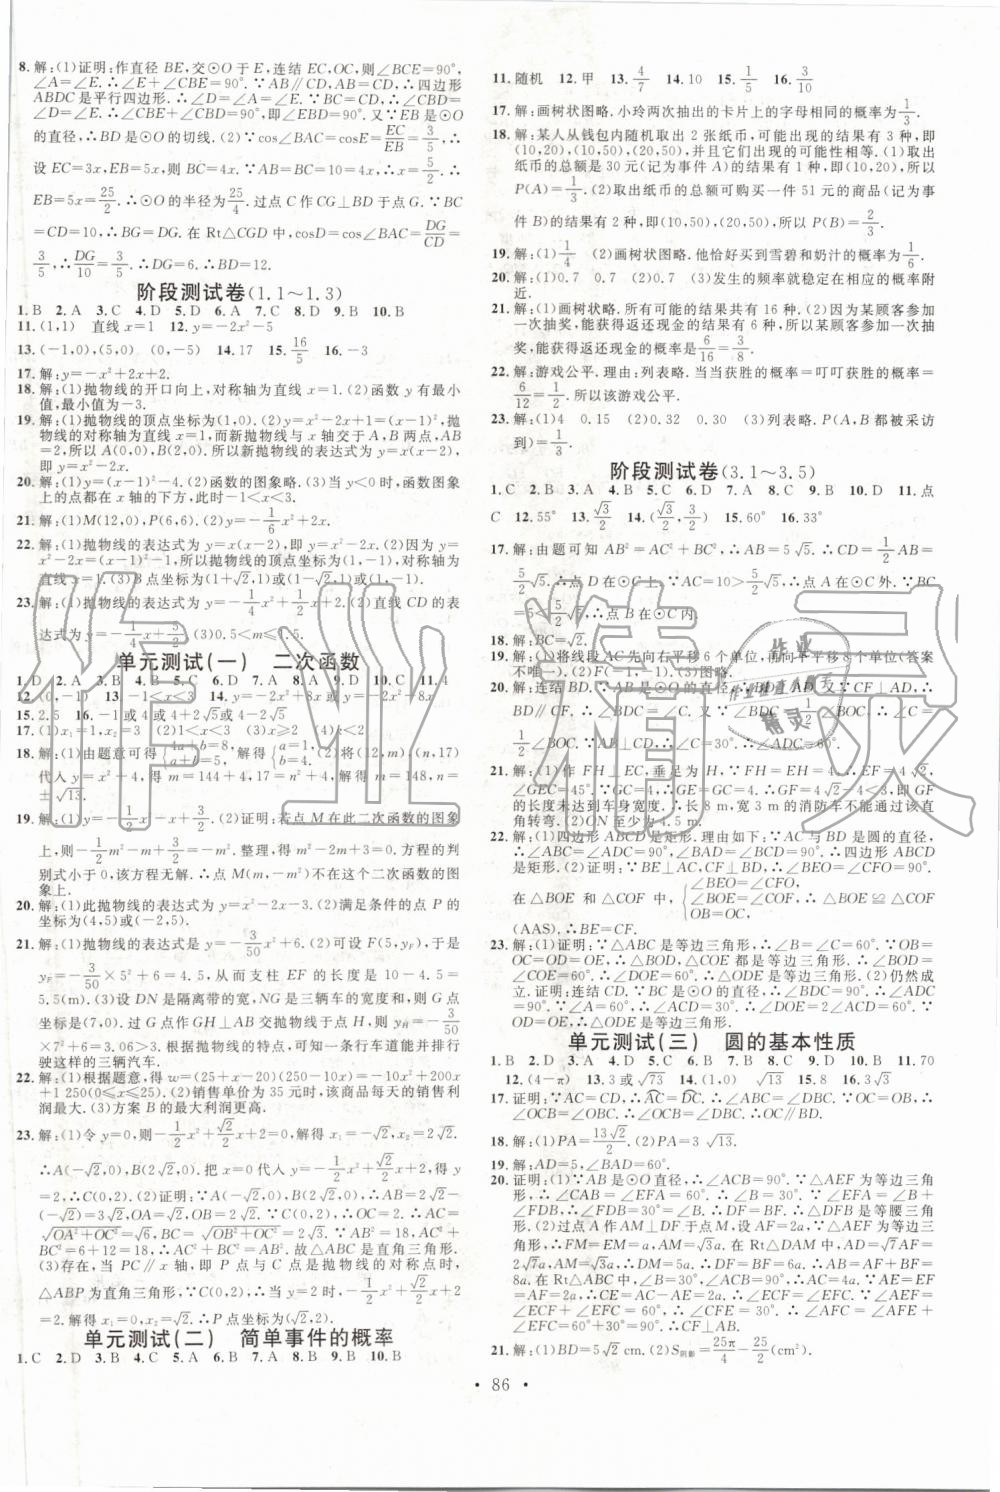 8.解:(1)证明:作直径BE,交⊙O于E,连结EC,OC,则∠BCE=90°,
∠A=∠E.∴∠E+∠CBE=90°.∵AB∥CD,AB=CD,∴四边形
ABDC是平行四边形.∴∠D=∠A=∠E.∵BC=CD,∴∠CBD=
∠D=∠E.∴∠CBE+∠CBD=90°,即∠EBD=90°.又∵EB是⊙O
的直径,∴BD是⊙O的切线.(2)∵cos∠BAC=cosE=EC/EB=3/5,∴
设EC=3x,EB=5x,则BC=4x.∵AB=BC=10=4x,∴x=5/2.∴
EB=5x=25/2,∴⊙O的半径为25/4.过点C作CG⊥BD于点G.∵BC
=CD=10,∴BG=DG.在Rt△CGD中,cosD=cos∠BAC=DG/CD=
3/5,∴DG/10=3/5,∴DG=6.∴BD=12.
阶段测试卷(1.1~1.3)
1.B 2.A 3.C 4.D 5.D 6.A 7.C 8.D 9.B 10.B
11.(1,1) 直线x=1 12.y=-2x²-5
13.(-1,0),(5,0) (0,-5) 14.17 15.16/5 16.-3
17.解:y=-x²+2x+2.
18.解:(1)抛物线的开口向上,对称轴为直线x=1.(2)函数y有最小
值,最小值为-3.
19.解:(1)抛物线的顶点坐标为(1,0).(2)y=x²-2x+1=(x-1)²,抛
物线的对称轴为直线x=1,而新抛物线与x轴交于A,B两点,AB
=2,所以A(0,0),B(2,0).所以新抛物线的表达式为y=x(x-2),
即y=x²-2x.
20.解:(1)y=(x-1)²-4.(2)函数的图象略.(3)当y<0时,函数图象
上的点都在x轴的下方,此时-1<x<3.
21.解:(1)M(12,0),P(6,6).(2)y=-1/6x²+2x.
22.解:(1)抛物线的表达式为y=x(x-2),即y=x²-2x.(2)因为y=
x²-2x=(x-1)²-1,所以抛物线的顶点坐标为(1,-1),对称轴为
直线x=1.(3)B点坐标为(1+√2,1)或(1-√2,1).
23.解:(1)抛物线的表达式为y=-1/4x²+x+5/4.(2)直线CD的表
达式为y=-1/4x+5/2.(3)0.5<m≤1.5.
单元测试(一) 二次函数
1.D 2.A 3.B 4.B 5.C 6.C 7.D 8.A 9.D 10.C 11.4
12.(0,-1) 13.-1<x<3 14.y=-2x²-8x或y=2x²-8x
15.2.5 16.-1或4或4+2√5或4-2√5
17.(1)x₁=1,x₂=3 (2)1<x<3 (3)x≥2 (4)k<2
18.解:(1)由题意可得{4a+b=8, a+b=5,解得{a=1, b=4.(2)将(12,m),(n,17)
代入y=x²+4,可得m=144+4,17=n²+4,解得m=148,n=
±√13.
19.解:(1)y=-1/2x²-x+3/2.(2)证明:若点M在此二次函数的图象
上,则-m²=-1/2m²-m+3/2.整理,得m²-2m+3=0.方程的判
别式小于0,该方程无解.∴点M(m,-m²)不在这个二次函数的图
象上.
20.解:(1)此抛物线的表达式为y=x²-2x-3.(2)满足条件的点P的
坐标为(4,5)或(-2,5).
21.解:(1)抛物线的表达式是y=-3/50x²+6.(2)可设F(5,yF),于是
yF=-3/50×5²+6=4.5,从而支柱EF的长度是10-4.5=
5.5(m).(3)设DN是隔离带的宽,NG是三辆车的宽度和,则G点
坐标是(7,0).过G点作GH⊥AB交抛物线于点H,则yH=-3/50
×7²+6=3.06>3.根据抛物线的特点,可知一条行车道能并排行
驶这样的三辆汽车.
22.解:(1)根据题意,得w=(25+x-20)(250-10x)=-10x²+200x+
1 250(0≤x≤25).(2)销售单价为35元时,该商品每天的销售利
润最大.(3)方案B的最大利润更高.
23.解:(1)令y=0,则-1/2x²+√2/2x+2=0,解得x₁=-√2,x₂=2√2.
∴A(-√2,0),B(2√2,0).把x=0代入y=-1/2x²+√2/2x+2,得y
=2,∴C(0,2).(2)证明:∵A(-√2,0),B(2√2,0),∴AB=2√2-
(-√2)=3√2,OA=√2,OB=2√2.∵C(0,2),∴OC=2.∴AC=
√OA²+OC²=√6,BC=√OB²+OC²=2√3.∵AB²=18,AC²+
BC²=6+12=18,∴AC²+BC²=AB².故△ABC是直角三角形.
(3)存在,当PC∥x轴,即P点与C点是抛物线的对称点时,
△ABP为直角三角形.∵C(0,2),∴当y=2时,-1/2x²+√2/2x+2
=2.解得x₁=0,x₂=√2.∴P点坐标为(√2,2).
单元测试(二) 简单事件的概率
1.C 2.D 3.B 4.C 5.A 6.D 7.B 8.D 9.B 10.B
11.随机 12.甲 13.4/7 14.10 15.1/5 16.3/10
17.解:画树状图略.小玲两次抽出的卡片上的字母相同的概率为1/3.
18.解:某人从钱包内随机取出2张纸币,可能出现的结果有3种,即
(10,20),(10,50),(20,50),并且它们出现的可能性相等.(1)取出
纸币的总额是30元(记为事件A)的结果有1种,即(10,20),所以
P(A)=1/3.(2)取出纸币的总额可购买一件51元的商品(记为事
件B)的结果有2种,即(10,50),(20,50),所以P(B)=2/3.
19.解:(1)1/4 (2)画树状图略.他恰好买到雪碧和奶汁的概率为1/6.
20.解:(1)0.7 0.7 (2)0.7 (3)发生的频率就稳定在相应的概率附
近.
21.解:(1)画树状图略.所有可能的结果共有16种.(2)因为某顾客参加
一次抽奖,能获得返还现金的结果有6种,所以某顾客参加一次抽
奖,能获得返还现金的概率是6/16=3/8.
22.解:游戏公平.理由:列表略.当当获胜的概率=叮叮获胜的概率=
6/12=1/2.所以该游戏公平.
23.解:(1)4 0.15 (2)0.32 0.30 (3)列表略.P(A,B都被采访
到)=1/3.
阶段测试卷(3.1~3.5)
1.C 2.B 3.A 4.B 5.C 6.D 7.A 8.C 9.B 10.D 11.点
C 12.55° 13.√3/2 14.(√3/2,3/2) 15.60° 16.33°
17.解:由题可知AB²=AC²+BC²,∴AB=5√5.∴CD=1/2AB=
5/2√5.∴点D在⊙C上.∵AC=10>5/2√5,∴点A在⊙C外.∵BC
=5<5/2√5,∴点B在⊙C内.
18.解:BC=√2.
19.解:(1)将线段AC先向右平移6个单位,再向下平移8个单位(答案
不唯一).(2)F(-1,-1).(3)图略.
20.解:连结BD.∵AB是⊙O的直径,∴BD⊥AD.又∵CF⊥AD,∴
BD∥CF.∴∠BDC=∠C.又∵∠BDC=1/2∠BOC,∴∠C=
1/2∠BOC.∵AB⊥CD,∴∠C=30°,∴∠ADC=60°.
21.解:(1)作FH⊥EC,垂足为H,∵FH=EH=4,∴EF=4√2,
∠GEC=45°.∵GC=4,∴GE=GC=4.∵4√2-4<3,即GF
的长度未达到车身宽度.∴长8m,宽3m的消防车不能通过该直
角转弯.(2)ON至少为4.5m.
22.解:(1)四边形ABCD是矩形.理由如下:∵AC与BD是圆的直径,
∴∠ABC=∠ADC=90°,∠BAD=90°.∴四边形ABCD
是矩形.(2)证明:∵BE⊥AC,CF⊥BD,∴∠BEO=∠CFO=90°.
在△BOE和△COF中,{∠BEO=∠CFO, ∠BOE=∠COF, OB=OC, ∴△BOE≌△COF
(AAS).∴BE=CF.
23.解:(1)证明:∵△ABC是等边三角形,∴∠B=∠C=60°.∵OB=
OC=OD=OE,∴△OBD,△COE都是等边三角形,∴∠BOD=
∠COE=60°.∴∠DOE=60°.∴△ODE是等边三角形.(2)仍然成
立.证明:连结CD.∵BC是⊙O的直径,∴∠BDC=90°,∴∠ADC
=90°.∵∠A=60°,∴∠ACD=30°,∴∠DOE=2∠ACD=60°.∵
OD=OE,∴△ODE是等边三角形.
单元测试(三) 圆的基本性质
1.B 2.D 3.A 4.D 5.C 6.C 7.B 8.B 9.C 10.B 11.70
12.(4-π) 13.3或√73 14.(1-√2,0) √3 15.8 16.3√3
17.证明:∵AC=CD,∴AC=DC.∴∠ABC=∠DBC.∵OC=OB,∴
∠OCB=∠OBC.∴∠OCB=∠DBC.∴OC∥BD.
18.解:(1)PA=13√2/2.(2)PA=3√13.
19.解:AD=5,∠BAD=60°.
20.证明:(1)∵AB是⊙O直径,∴∠ACB=90°.∵△AEF为等边三角
形,∴∠CAB=∠EFA=60°.∴∠B=30°.∵∠EFA=∠B+
∠FDB,∴∠B=∠FDB=30°.∴DF=BF.∴△DFB是等腰三角
形.(2)过点A作AM⊥DF于点M,设AF=2a,∵△AEF为等边三
角形,∴FM=EM=a,AM=√3a.在Rt△DAM中,AD=√7AF=
2√7a,AM=√3a,∴DM=5a.∴DF=BF=6a.∴AB=AF+BF=
8a.在Rt△ABC中,∠B=30°,∠ACB=90°,∴AC=4a.∵AE=EF
=AF=2a,∴CE=AC-AE=2a.∴∠ECF=∠EFC.∵∠AEF=
∠ECF+∠EFC=60°,∴∠CFE=30°.∴∠AFC=∠AFE+
∠EFC=60°+30°=90°,∴CF⊥AB.
21.解:(1)BD=5√2 cm.(2)S阴影=25π/4-25/2(cm²).
· 86 ·